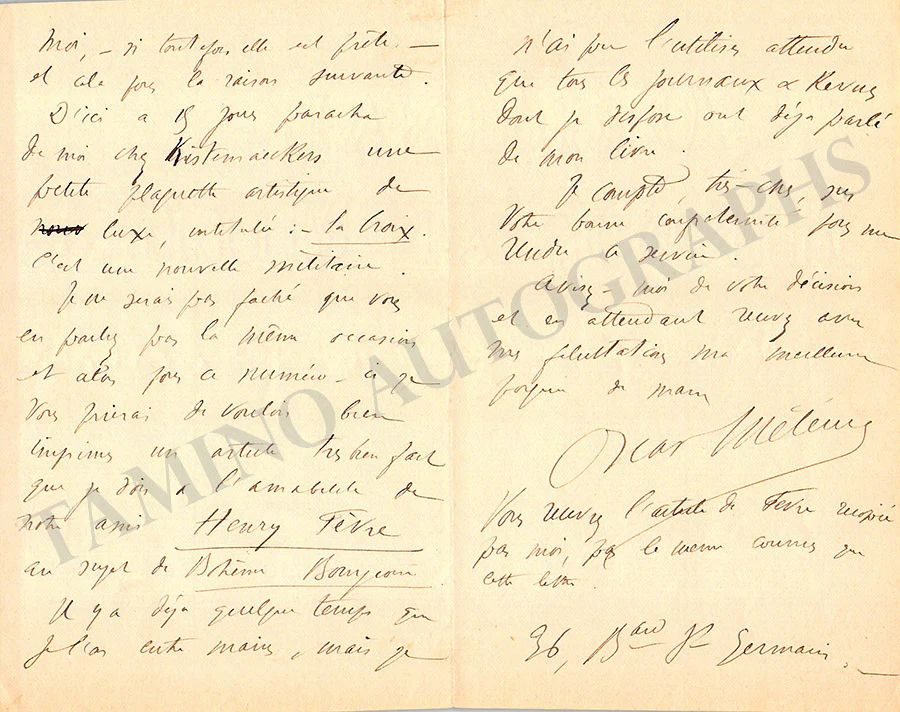 Moi, - si toutefois elle est prête. -
et cela pour la raison suivante.
D'ici a 15 jours paraitra
de moi chez Kistemaeckers une
petite plaquette artistique de
luxe, intitulée : - la Croix.
C'est une nouvelle militaire.
Je ne serais pas faché que vous
en parliez par la même occasion
et alors pour ce numéro-là je
Vous prierai de vouloir bien
imprimer un article tres bien fait
que je dois a l'amabilité de
notre ami Henry Fèvre
au sujet de Bohême Bourgeoise
Il y a déja quelque temps que
je l'ai entre mains, mais je
n'ai pu l'utiliser attendu
que tous les journaux & Revues
dont je dispose ont déja parlé
de mon livre.
Je compte, très-cher, sur
Votre bonne confraternité pour me
rendre ce service.
Avisez-moi de votre décision
et en attendant recevez avec
mes félicitations ma meilleure
poignée de main
Oscar Méténier
Vous recevrez l'article de Fèvre recopié
par moi, par le même courrier que
cette lettre.
36, Bard St Germain. -
TAMINO AUTOGRAPHS